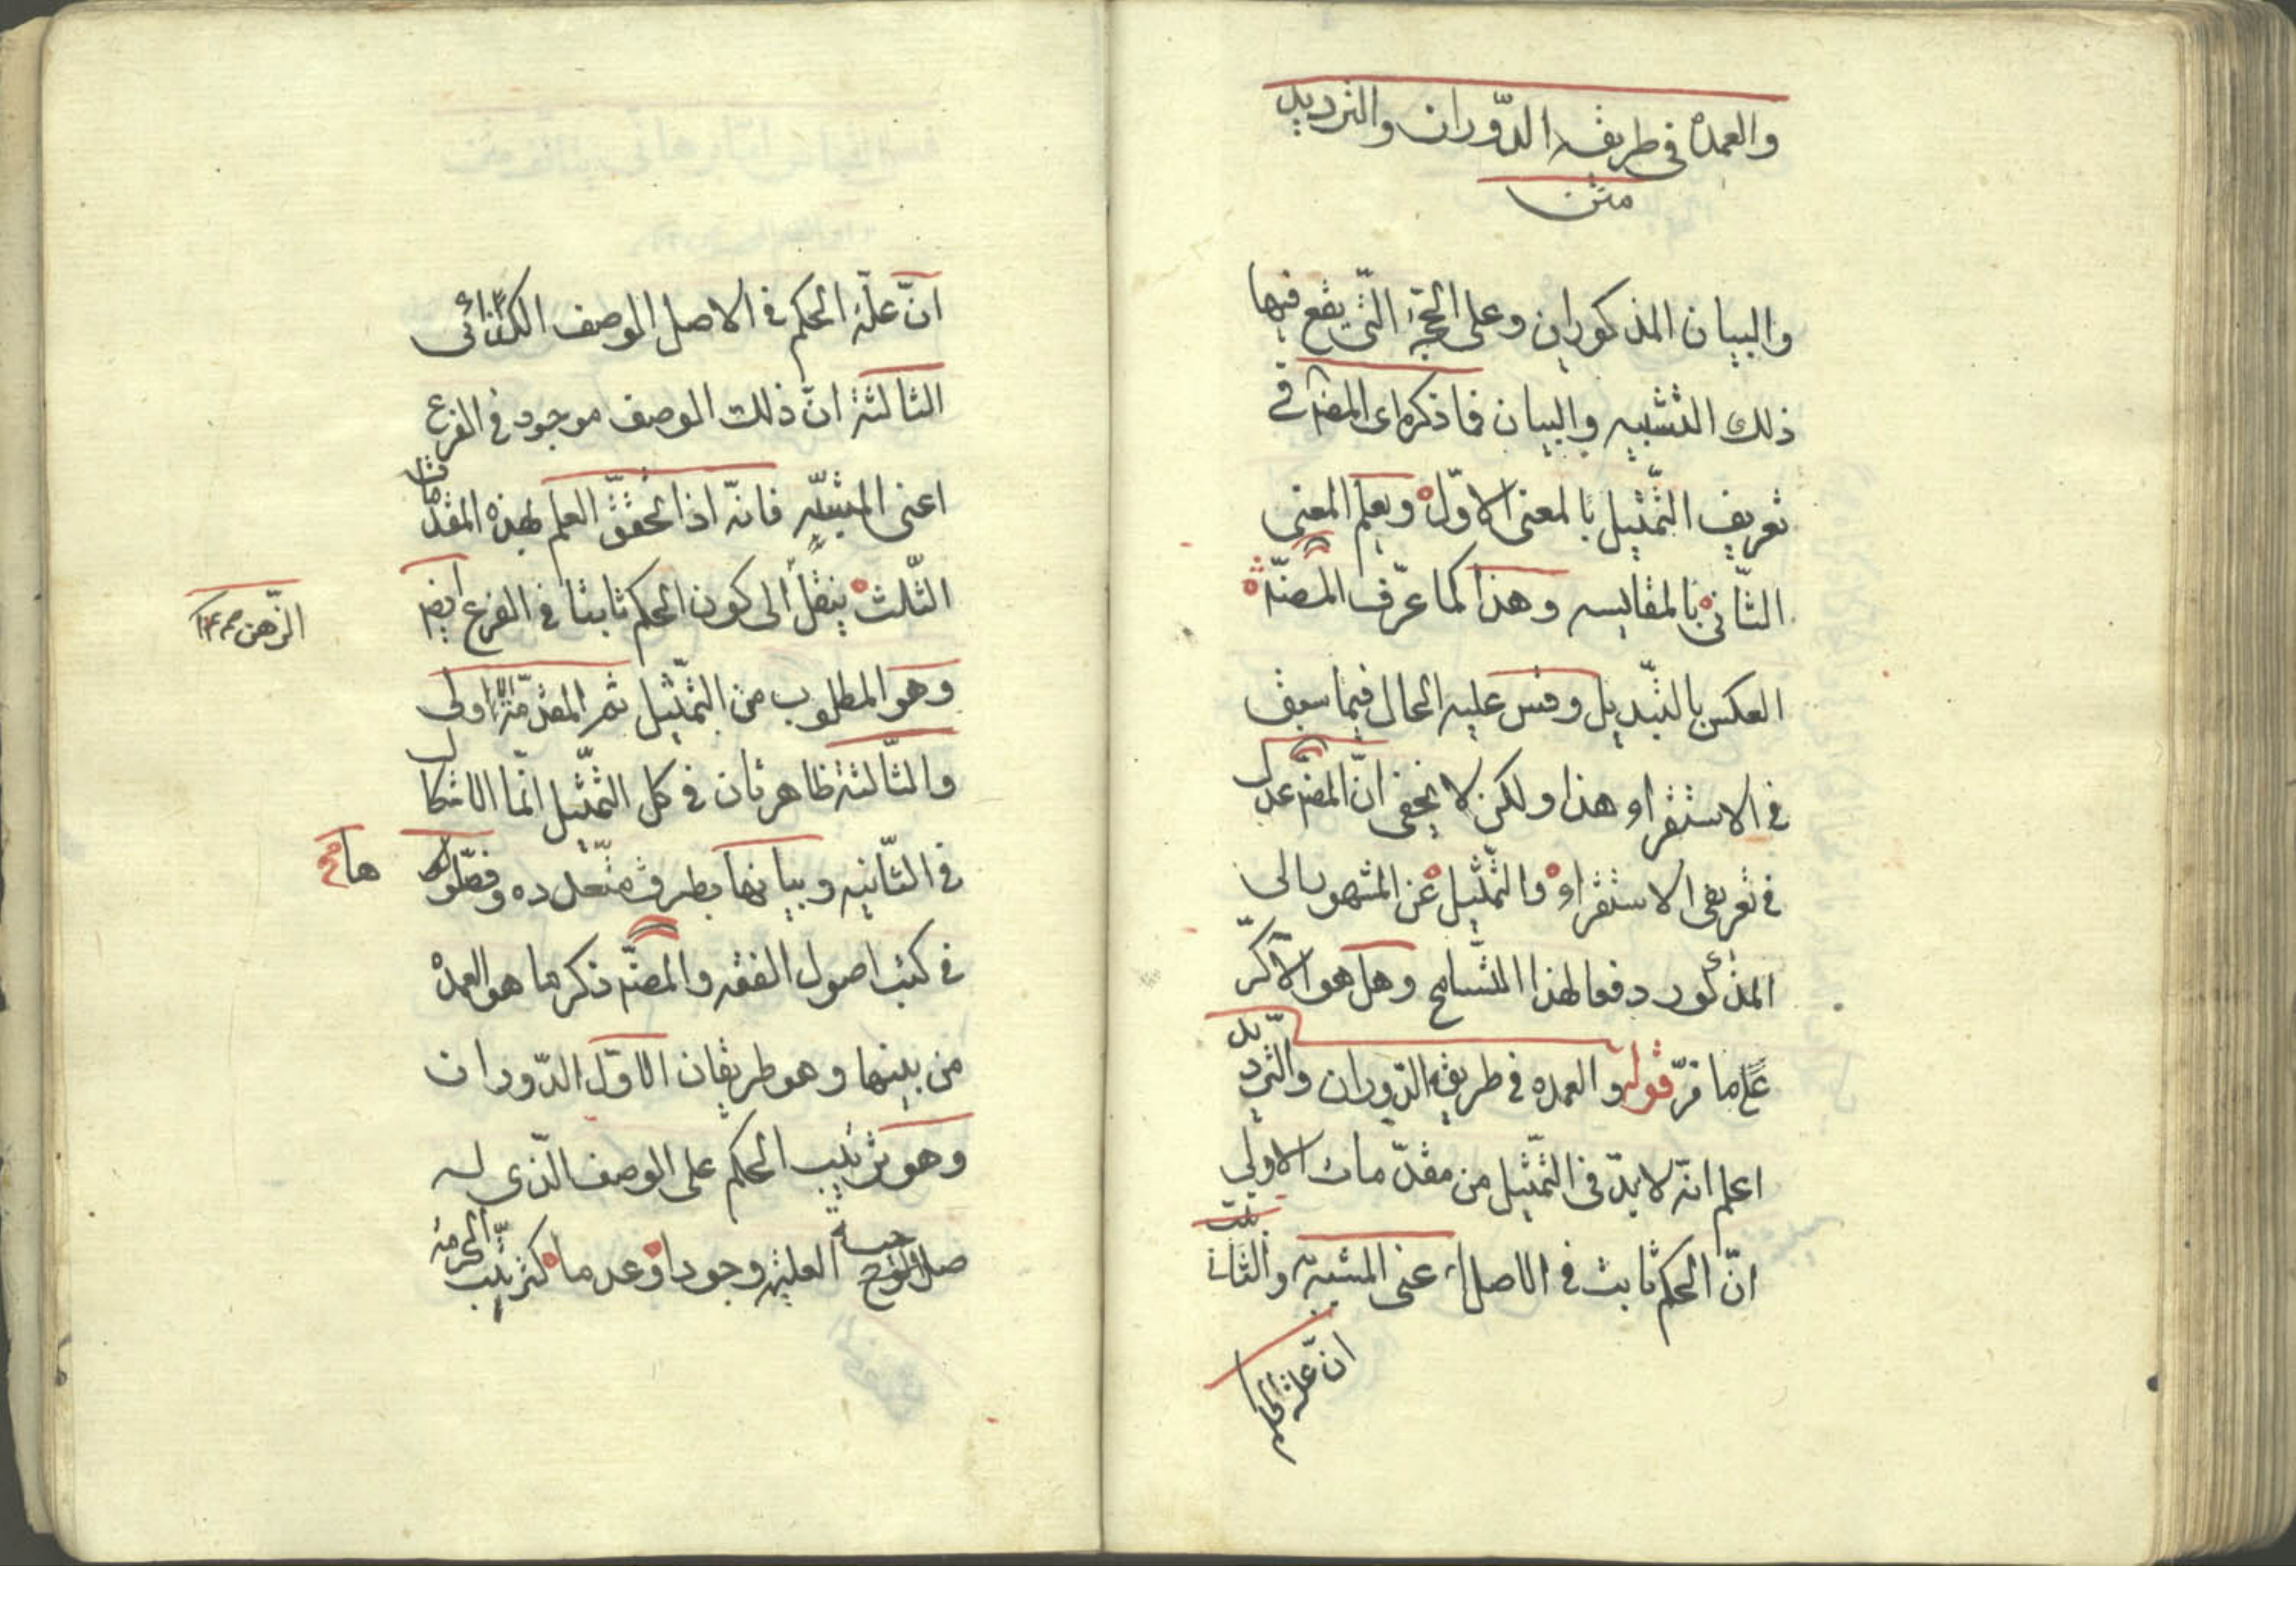 والعمدة فى طريقه الدّوران والترديد
متن
والبيان المذكورين وعلى الحجّة الّتى يقع فيها
ذلك التشبيه والبيان فما ذكره اى المصنّ فى
تعريف التّمثيل بالمعنى الاوّل ويعلم المعنى
الثّانى بالمقايسه وهذا كما عرّف المصنّ
العكس بالتّبديل وقس عليه الحال فيما سبق
فى الاستقراء هذا ولكن لا يخفى انّ المصنّ عدل
فى تعريفى الاستقراء والتّمثيل عن المشهور الى
المذكور دفعا لهذا التّسامح وهل هو الّا كرّ
على ما فرّ قوله والعمده فى طريقه الدّوران والتّرديد
اعلم انّه لا بدّ فى التّمثيل من مقدّمات الاولى
انّ الحكم ثابت فى الاصل اعنى المشبّه به والثّانية
انّ علة الحكم
انّ علّة الحكم فى الاصل الوصف الكذائى
الثالثة انّ ذلك الوصف موجود فى الفرع
اعنى المشبّه فانّه اذا تحقّق العلم بهذه المقدّمات
الثّلث ينتقل الى كون الحكم ثابتا فى الفرع ايضا
الذّهن صح
وهو المطلوب من التّمثيل ثم المقدّمة الاولى
والثّالثة ظاهرتان فى كل التّمثيل انّما الاشكال
فى الثّانيه وبيانها بطرق متعدده وفصّلوها
ها
فى كتب اصول الفقه والمصنّ ذكر ما هو العمدة
من بينها وهو طريقان الاوّل الدّوران
وهو ترتيب الحكم على الوصف الّذى له
صلوح العليّة وجودا وعدما كترتيب الحرمة